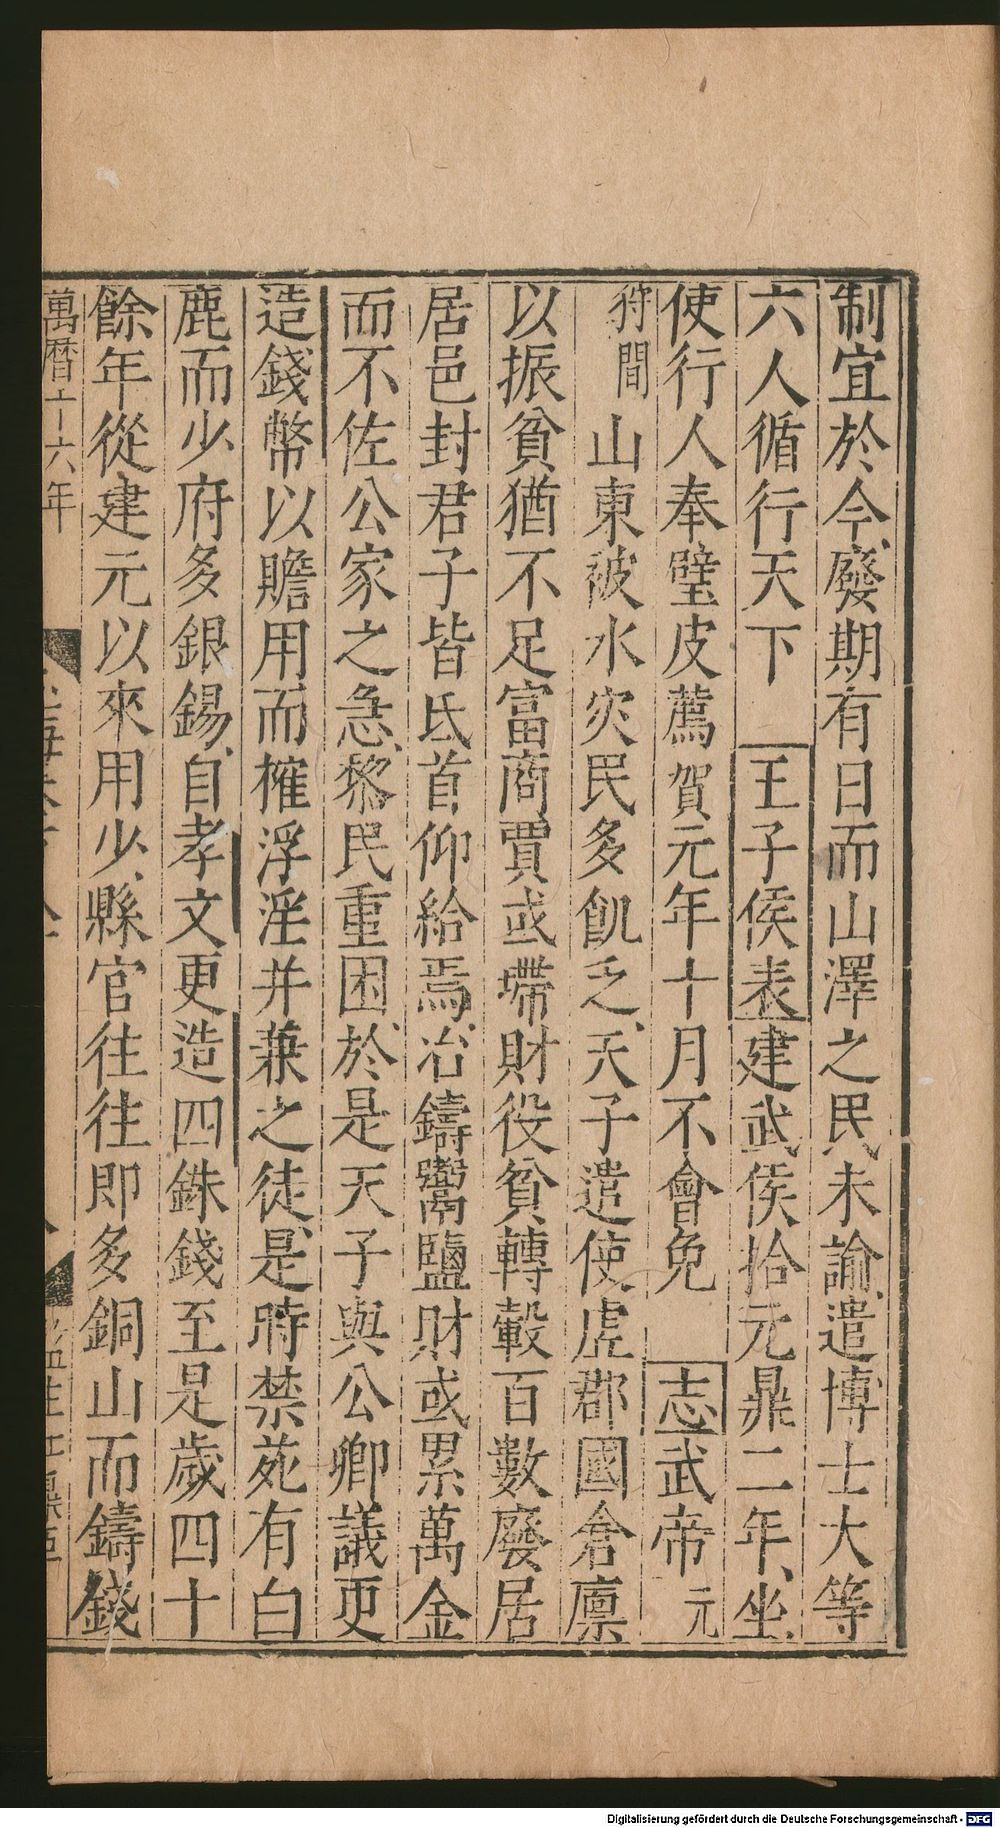 制宜於今廢期有日而山澤之民未諭遣博士大等
六人循行天下 王子侯表建武侯拾元鼎二年坐
使行人奉璧皮薦賀元年十月不會免 志武帝元
狩間山東被水灾民多飢乏天子遣使虚郡國倉廪
以振貧猶不足富商賈或墆財役貧轉轂百數廢居
居邑封君子皆氐首仰給焉冶鑄鬻鹽財或累萬金
而不佐公家之急黎民重困於是天子與公卿議更
造錢幣以贍用而摧浮淫并兼之徒是時禁苑有白
鹿而少府多銀錫自孝文更造四銖錢至是歲四十
餘年從建元以來用少縣官往往即多銅山而鑄錢
萬曆二十六年
Digitalisierung gefördert durch die Deutsche Forschungsgemeinschaft - DFG